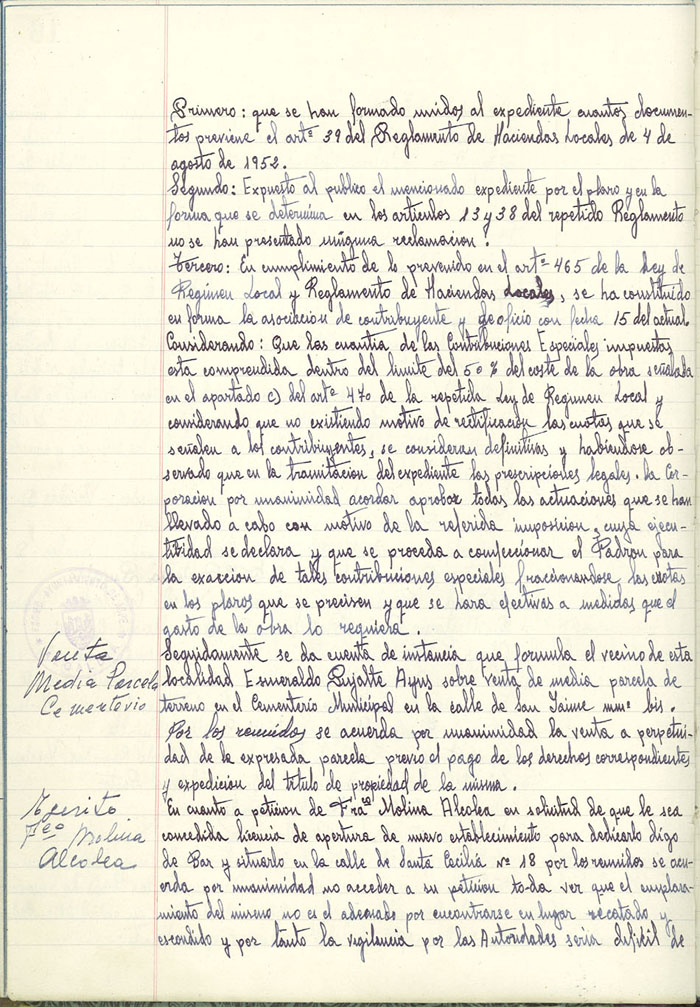 Primero: que se han formado unidos al expediente cuantos documen-
tos previene el artº 39 del Reglamento de Haciendas Locales de 4 de
agosto de 1952.
Segundo: Expuesto al publico el mencionado expediente por el plazo y en la
forma que se determina en los articulos 13 y 38 del repetido Reglamento
no se han presentado ninguna reclamacion.
Tercero: En cumplimiento de lo prevenido en el artº 465 de la Ley de
Regimen Local y Reglamento de Haciendas Locales, se ha constituido
en forma la asociacion de contribuyente y de oficio con fecha 15 del actual
Considerando: Que las cuantia de las Contribuciones Especiales impuestas
esta comprendida dentro del limite del 50% del coste de la obra señalada
en el apartado c) del artº 470 de la repetida Ley de Regimen Local y
considerando que no existiendo motivo de rectificacion las cuotas que se
señalen a los contribuyentes, se consideran definitivas y habiendose ob-
servado que en la tramitacion del expediente las prescripciones legales. la Cor-
poracion por unanimidad acordar aprobar todas las actuaciones que se han
llevado a cabo con motivo de la referida imposicion, cuya ejecu-
tibidad se declara y que se proceda a confeccionar el Padron para
la exaccion de tales contribuciones especiales fraccionandose las cuotas
en los plazos que se precisen y que se hara efectivas a medidas que el
gasto de la obra lo requiera.
Venta
Media Parcela
Cementerio
Seguidamente se da cuenta de instancia que formula el vecino de esta
localidad Esmeraldo Pujalte Ayus sobre venta de media parcela de
terreno en el Cementerio Municipal en la calle de san Jaime nmº bis.
Por los reunidos se acuerda por unanimidad la venta a perpetui-
dad de la expresada parcela previo el pago de los derechos correspondientes
y expedicion del titulo de propiedad de la misma.
Escrito
Fco Molina
Alcolea
En cuanto a peticion de Frcº Molina Alcolea en solicitud de que le sea
concedida licencia de apertura de nuevo establecimiento para dedicarlo digo
de Bar y situarlo en la calle de Santa Cecilia nº 18 por los reunidos se acu-
erda por unanimidad no acceder a su peticion toda ver que el emplaza-
miento del mismo no es el adecuado por encontrarse en lugar recatado y
escondido y por tanto la vigilancia por las Autoridades seria dificil de